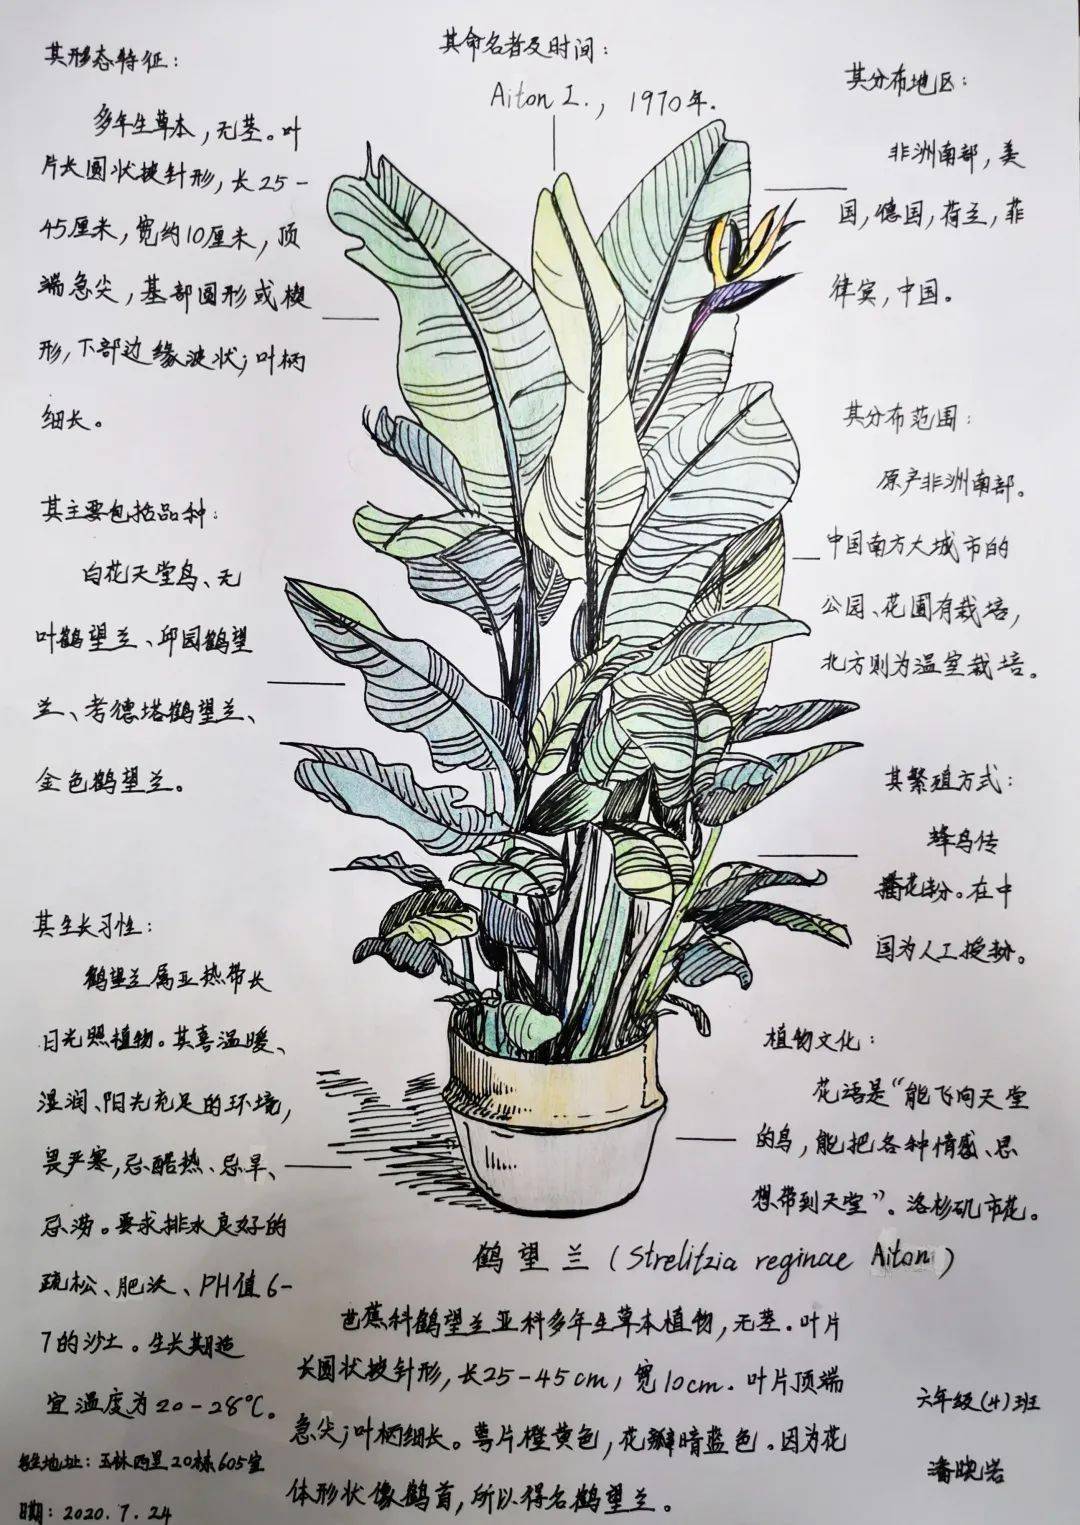 其形态特征：
多年生草本，无茎。叶
片长圆状披针形，长25-
45厘米，宽约10厘米，顶
端急尖，基部圆形或楔
形，下部边缘波状；叶柄
细长。
其命名者及时间：
Aiton I.，1970年.
其分布地区：
非洲南部，美
国，德国，荷兰，菲
律宾，中国。
其分布范围：
原产非洲南部。
中国南方大城市的
公园、花圃有栽培，
北方则为温室栽培。
其主要包括品种：
白花天堂鸟、无
叶鹤望兰、邱园鹤望
兰、考德塔鹤望兰、
金色鹤望兰。
其繁殖方式：
蜂鸟传
播花粉。在中
国为人工授粉。
其生长习性：
鹤望兰属亚热带长
日光照植物。其喜温暖、
湿润、阳光充足的环境，
畏严寒，忌酷热、忌旱、
忌涝。要求排水良好的
疏松、肥沃、PH值6-
7的沙土。生长期适
宜温度为20-28℃。
植物文化：
花语是“能飞向天堂
的鸟，能把各种情感、思
想带到天堂”。洛杉矶市花。
鹤望兰（Strelitzia reginae Aiton）
芭蕉科鹤望兰亚科多年生草本植物，无茎.叶片
长圆状披针形，长25-45cm，宽10cm.叶片顶端
急尖；叶柄细长。萼片橙黄色，花瓣暗蓝色。因为花
体形状像鹤首，所以得名鹤望兰。
地址：玉林西里20栋605室
日期：2020.7.24
六年级(4)班
潘晓岩